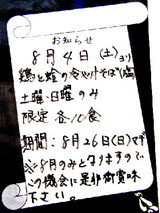 お知らせ
8月4日(土)ヨリ
鶏と蛤の冷やけそば(塩)
土曜・日曜のみ
限定 各10食
期間:8月26日(日)マデ
※8月のみとなりますので
この機会に是非御賞味
下さい。